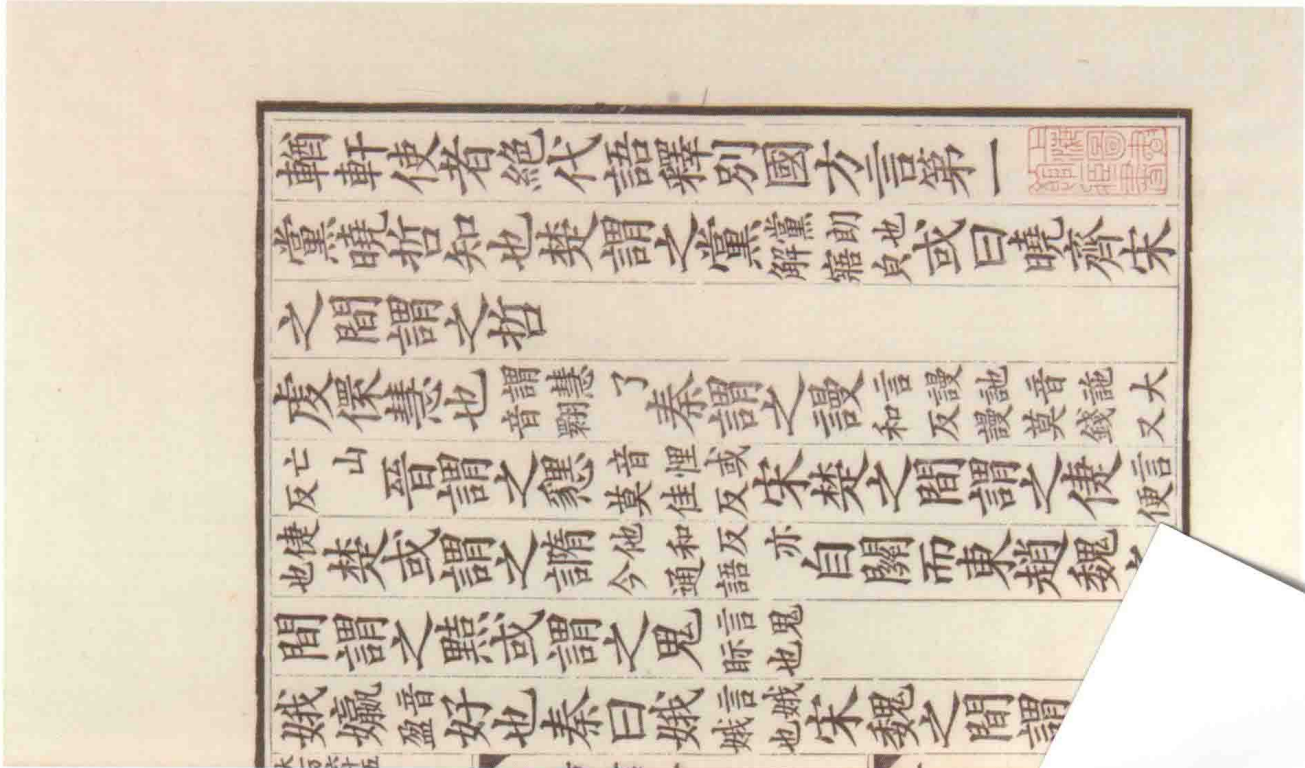 輶軒使者絕代語釋別國方言第一
黨曉哲知也楚謂之黨黨朗也解寤皃或曰曉齊宋
之間謂之哲
虔儇慧也謂慧了音翾秦謂之謾言謾訑音施大和反謾莫錢又
亡山反晉謂之㦟音悝或莫佳反宋楚之間謂之倢言便
倢也楚或謂之䜏他和反亦今通語自關而東趙魏
間謂之黠或謂之鬼言鬼眎也
娥㜲音盈好也秦曰娥言娥娥也宋魏之間謂